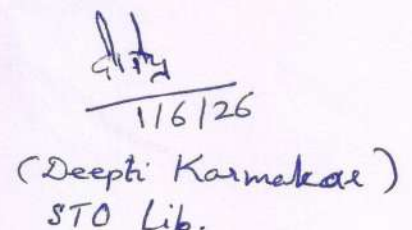 1/6/26
(Deepti Karmakar)
STO Lib.